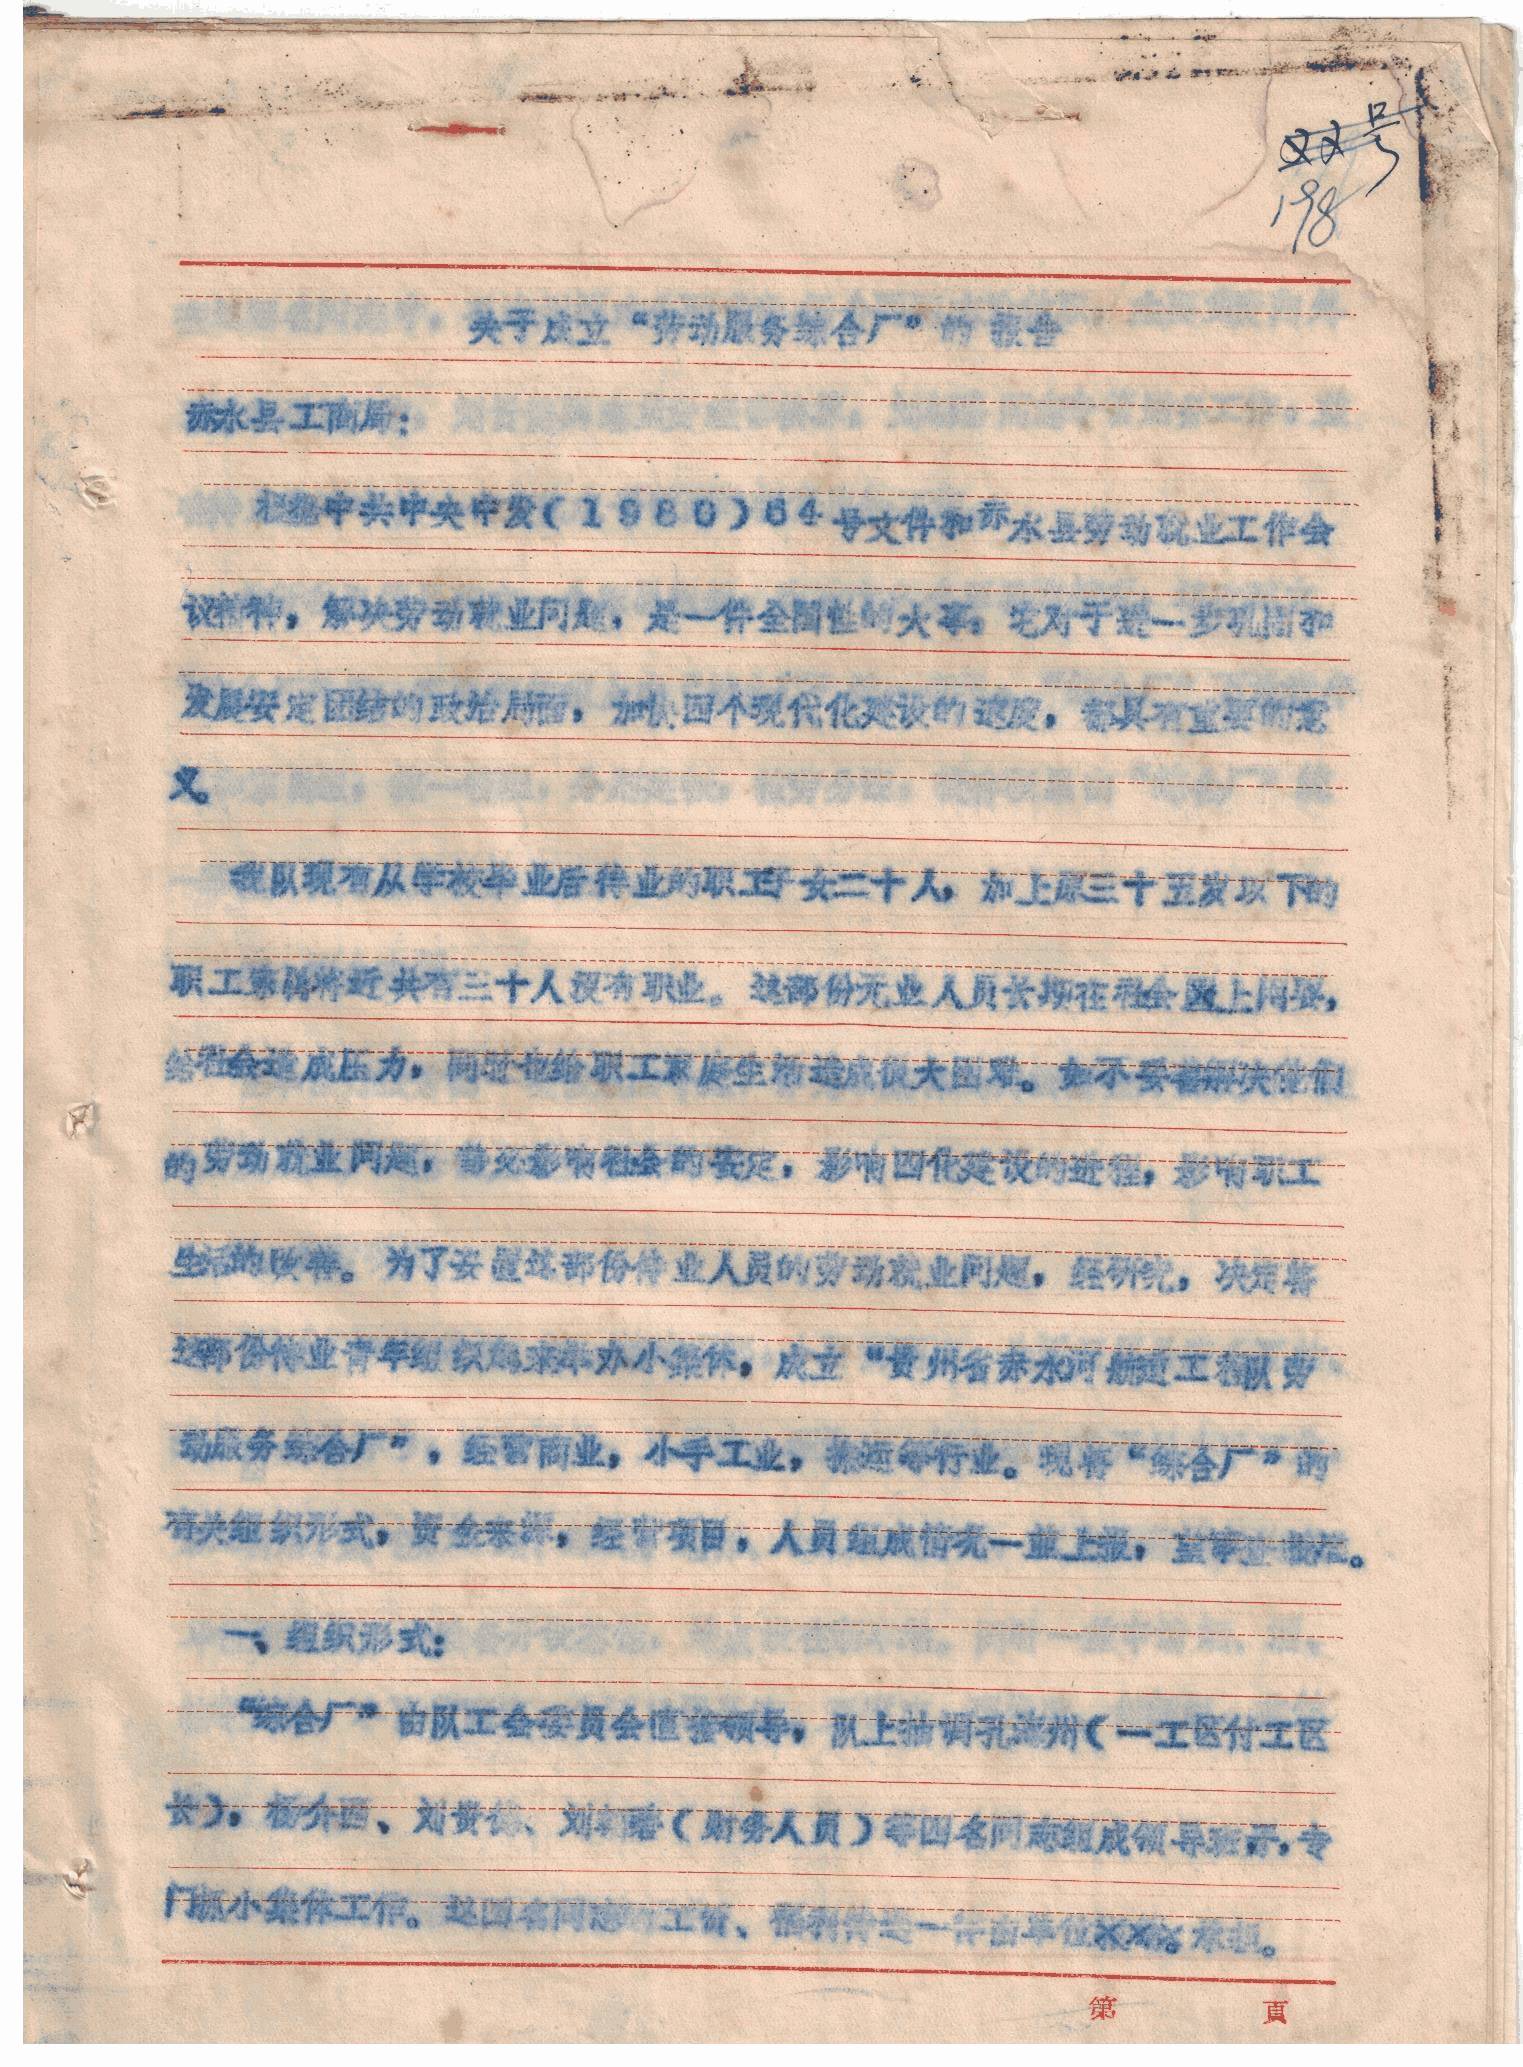 号
198
关于成立“劳动服务综合厂”的报告
赤水县工商局：
根据中共中央中发(1980)64号文件和赤水县劳动就业工作会
议精神，解决劳动就业问题，是一件全国性的大事，它对于进一步巩固和
发展安定团结的政治局面，加快四个现代化建设的速度，都具有重要的意
义。
我队现有从学校毕业后待业的职工子女二十人，加上原三十五岁以下的
职工家属将近共有三十人没有职业。这部份无业人员长期在社会上闲荡，
给社会造成压力，同时也给职工家庭生活造成很大困难。如不妥善解决他们
的劳动就业问题，势必影响社会的安定，影响四化建设的进程，影响职工
生活的改善。为了妥置这部份待业人员的劳动就业问题，经研究，决定将
这部份待业青年组织起来举办小集体，成立“贵州省赤水河航道工程队劳
动服务综合厂”，经营商业，小手工业，搬运等行业。现将“综合厂”的
有关组织形式，资金来源，经营项目，人员组成情况一并上报，请审查批准。
一、组织形式：
“综合厂”由队工会委员会直接领导，队上抽调孔 州(一工区付工区
长)，杨介西、刘贵 、刘 (财务人员)等四名同志组成领导班子，专
门抓小集体工作。这四名同志的工资、福利待遇一件由单位 承担。
第 頁